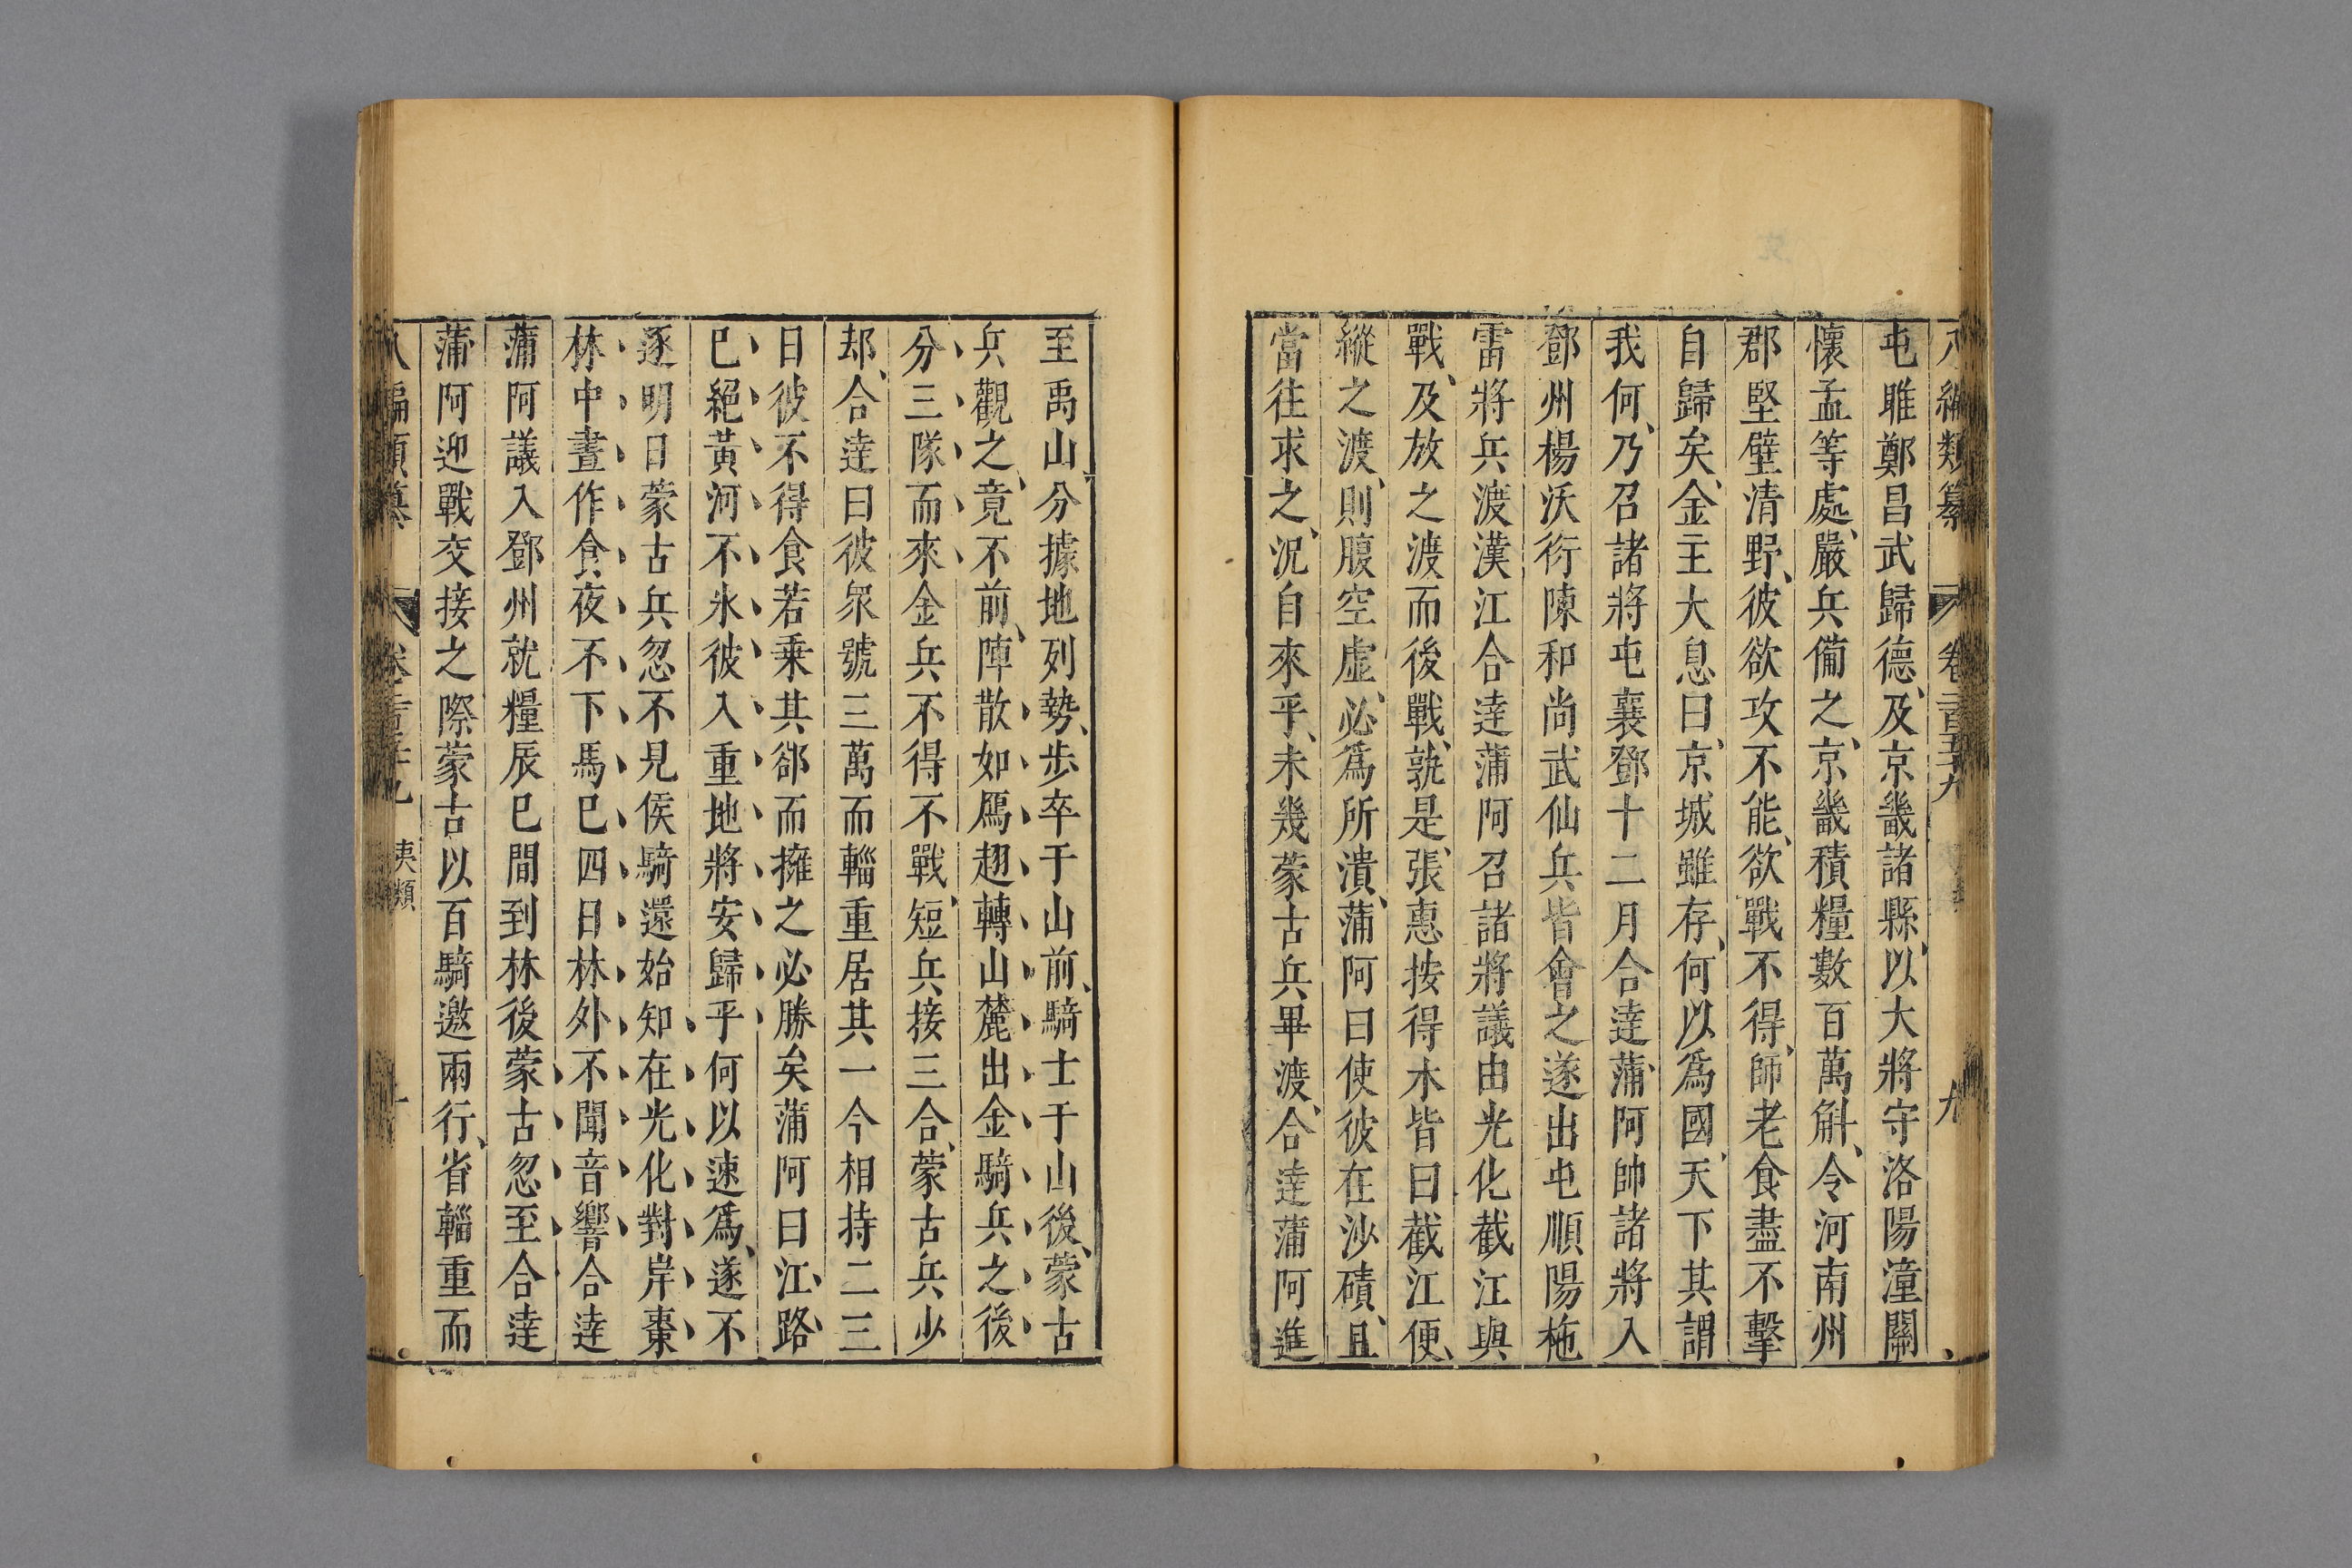 八編類纂 卷二百三十九 九
屯睢鄭昌武歸德、及京畿諸縣、以大將守洛陽潼關
懷孟等處、嚴兵備之、京畿積糧數百萬斛、令河南州
郡堅壁清野、彼欲攻不能、欲戰不得、師老食盡不擊
自歸矣、金主大息曰、京城雖存、何以爲國、天下其謂
我何、乃召諸將屯襄鄧十二月合逹蒲阿帥諸將入
鄧州楊沃衍陳和尚武仙兵皆會之遂出屯順陽柂
雷將兵渡漢江合逹蒲阿召諸將議由光化截江與
戰、及放之渡而後戰、孰是、張惠按得木皆曰截江便、
縱之渡、則腹空虛、必爲所潰、蒲阿曰使彼在沙磧、且
當往求之、況自來乎、未幾蒙古兵畢渡、合逹蒲阿進
至禹山、分據地列勢、步卒于山前、騎士于山後、蒙古
兵觀之、竟不前、陣散如鴈翅轉山麓出金騎兵之後
分三隊而來金兵不得不戰、短兵接三合、蒙古兵少
却、合逹曰彼衆號三萬而輜重居其一今相持二三
日彼不得食若乗其郤而擁之必勝矣蒲阿曰江路
已絕黃河不氷彼入重地將安歸乎何以速爲、遂不
逐明日蒙古兵忽不見俟騎還始知在光化對岸棗
林中晝作食夜不下馬已四日林外不聞音響合逹
蒲阿議入鄧州就糧辰巳間到林後蒙古忽至合逹
蒲阿迎戰交接之際蒙古以百騎邀兩行、省輜重而
八編類纂 夷類